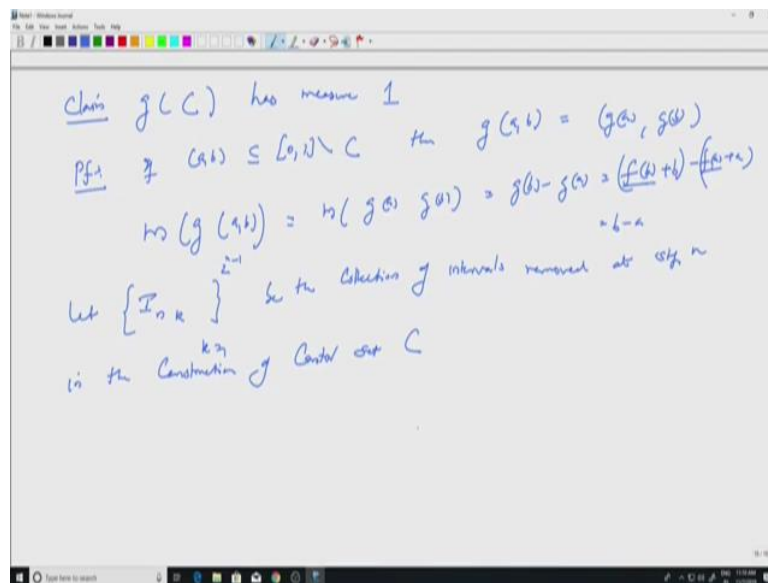 Note1 - Windows Journal
File Edit View Insert Actions Tools Help
Claim g(C) has measure 1
Pf:- If (a,b) ⊆ [0,1] \ C then g(a,b) = (g(a), g(b))
m(g(a,b)) = m(g(a) g(b)) = g(b) - g(a) = (f(b)+b) - (f(a)+a)
= b-a
Let { I_{n k} }_{k=1}^{2^{n-1}} be the collection of intervals removed at stg n
in the Construction of Cantor set C
Type here to search
ENG